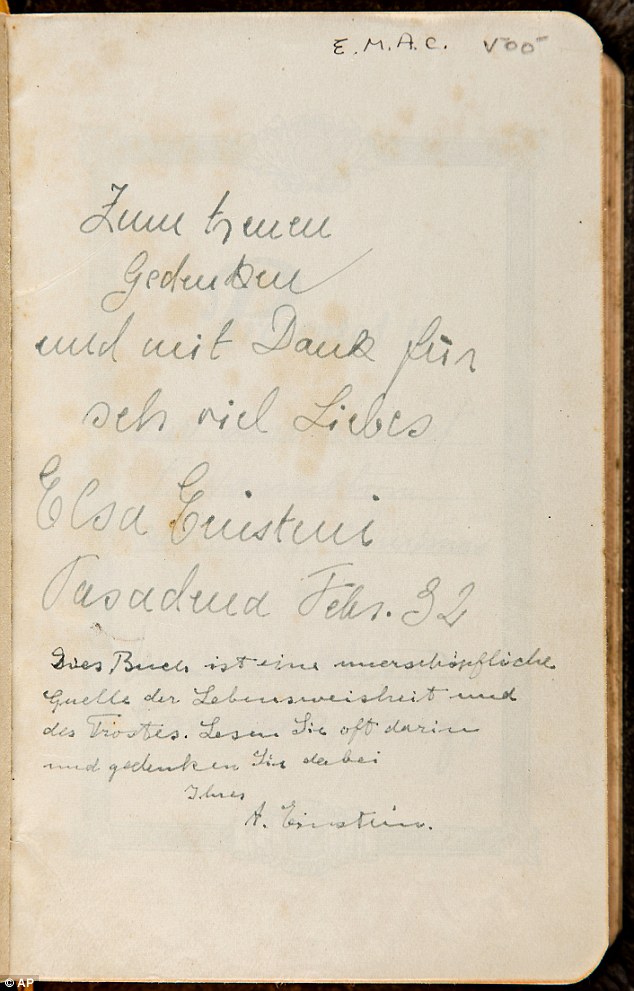 E.M.A.C.
Zum treuen
Gedenken
und mit Dank für
sehr viel Liebes
Elsa Einstein
Pasadena Febr. 32
Dies Buch ist eine unerschöpfliche
Quelle der Lebensweisheit und
des Trostes. Lesen Sie oft darin
und gedenken Sie dabei
Ihres
A. Einstein.
© AP